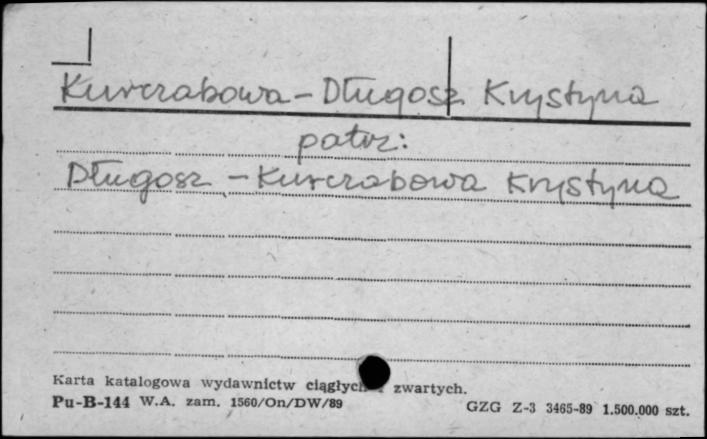 Kurczabowa - Długosz Krystyna
patrz:
Długosz - Kurczabowa Krystyna
Karta katalogowa wydawnictw ciągłych i zwartych.
Pu-B-144 W.A. zam. 1560/On/DW/89 GZG Z-3 3465-89 1.500.000 szt.